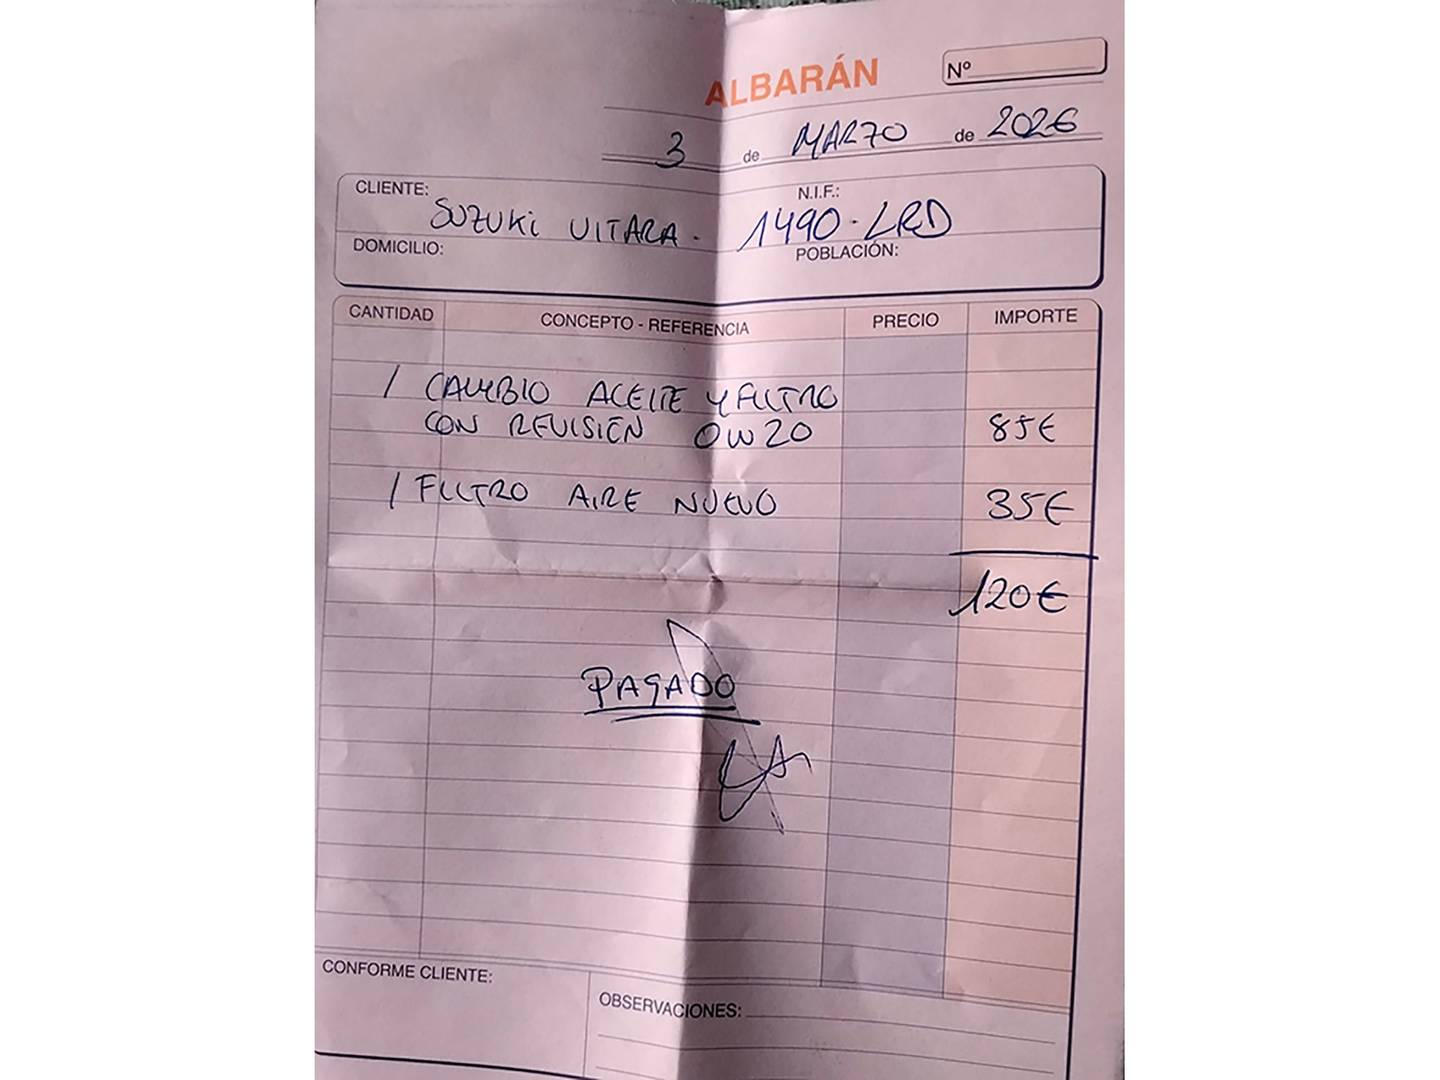 ALBARÁN
Nº
3 de MARZO de 2026
CLIENTE: N.I.F.:
SUZUKI VITARA - 1490-LRD
DOMICILIO: POBLACIÓN:
CANTIDAD CONCEPTO - REFERENCIA PRECIO IMPORTE
1 CAMBIO ACEITE Y FILTRO
CON REVISIÉN 0W20 85€
1 FILTRO AIRE NUEVO 35€
120€
PAGADO
CONFORME CLIENTE:
OBSERVACIONES: